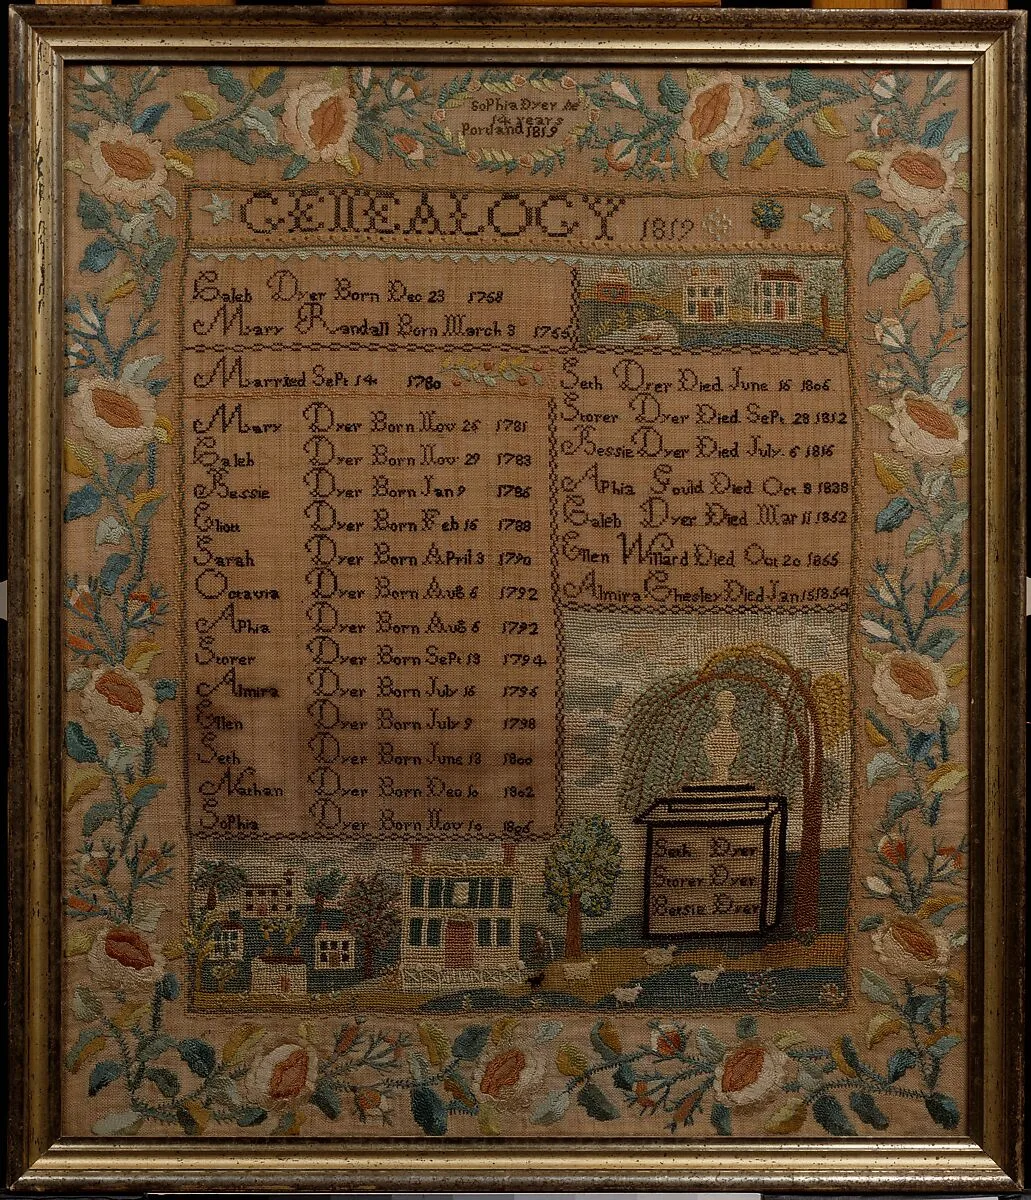 SoPhia Dyer Æ
14 years
Portland 1819
GENEALOGY 1819
Caleb Dyer Born Dec 23 1758
Mary Randall Born March 3 1766
Married SePt 14 1780
Mary Dyer Born Nov 25 1781
Caleb Dyer Born Nov 29 1783
Bessie Dyer Born Jan 9 1786
Eliott Dyer Born Feb 16 1788
Sarah Dyer Born APril 3 1790
Octavia Dyer Born Aug 6 1792
APhia Dyer Born Aug 6 1792
Storer Dyer Born SePt 13 1794
Almira Dyer Born July 16 1796
Ellen Dyer Born July 9 1798
Seth Dyer Born June 13 1800
Nathan Dyer Born Dec 10 1802
SoPhia Dyer Born Nov 10 1805
Seth Dyer Died June 16 1806
Storer Dyer Died SePt 28 1812
Bessie Dyer Died July 6 1816
APhia Gould Died Oct 8 1838
Caleb Dyer Died Mar 11 1852
Ellen Willard Died Oct 20 1865
Almira Chesley Died Jan 15 1854
Seth Dyer
Storer Dyer
Betsie Dyer